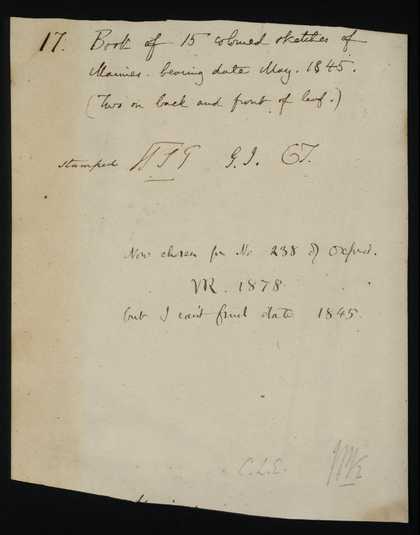 17. Book of 15 coloured sketches of
Marines. bearing date May. 1845.
(Two on back and front of leaf.)
stamped HFG G.J. CT.
Now chosen for No 238 of Oxford.
JR. 1878
but I can't find date 1845.
C.L.E.